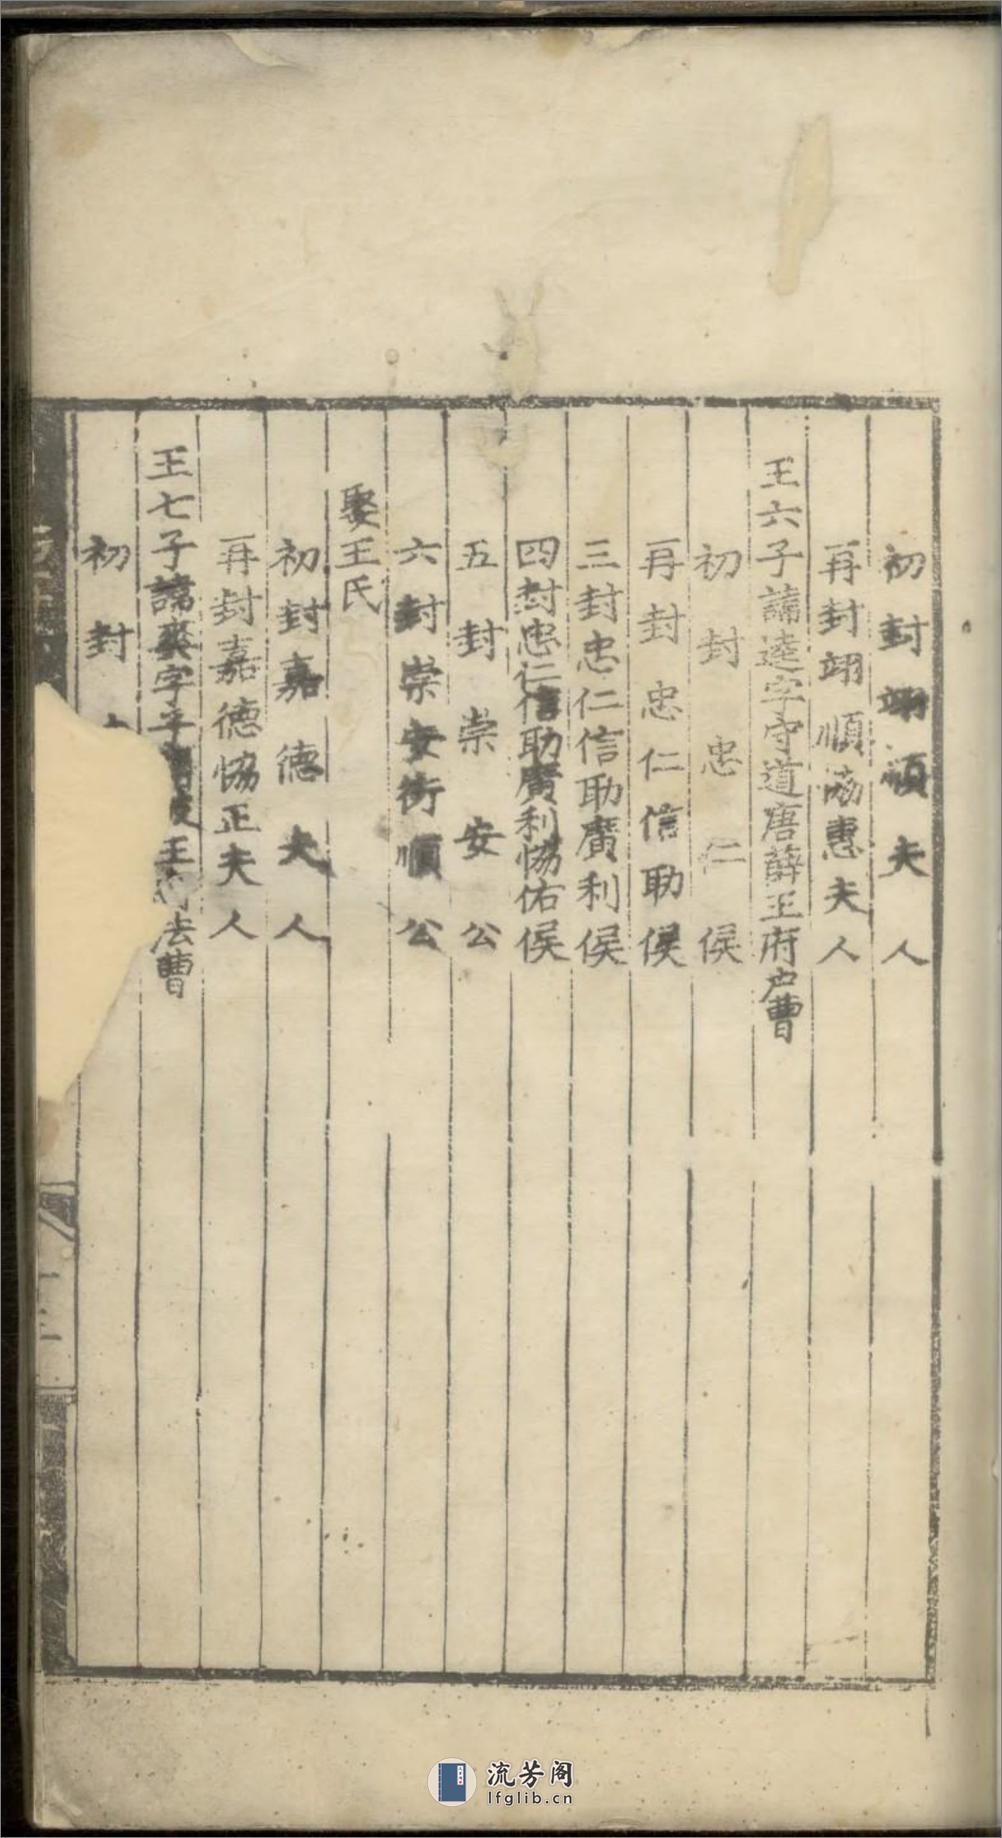 初封翊順夫人
再封翊順助惠夫人
王六子諱逵字守道唐薛王府户曹
初封忠仁侯
再封忠仁信助侯
三封忠仁信助廣利侯
四封忠仁信助廣利協佑侯
五封崇安公
六封崇安衍順公
娶王氏
初封嘉德夫人
再封嘉德協正夫人
王七子諱爽字子王府法曹
初封
流芳阁
lfglib.cn